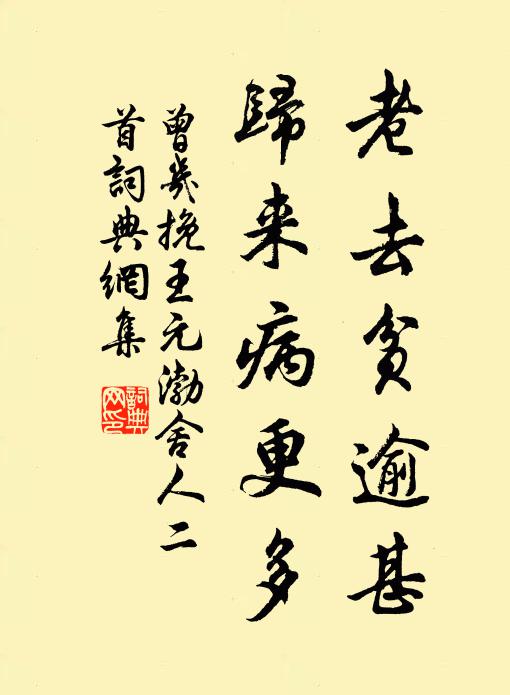 老去貧逾甚
歸来病更多
曾幾挽王元渤舍人二
首詞典網集
詞典
网印